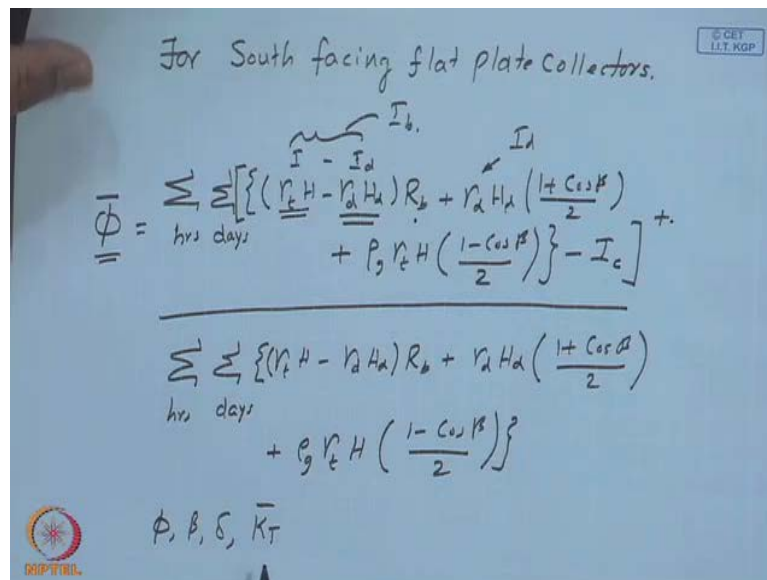 © CET
I.I.T. KGP
For South facing flat plate collectors.
I_b.
I - I_d   I_d
Φ̄ = Σ Σ [{(r_t H - r_d H_d) R_b + r_d H_d ((1 + Cos β)/2)
hrs days
+ ρ_g r_t H ((1 - Cos β)/2)} - I_c]⁺.
Σ Σ {(r_t H - r_d H_d) R_b + r_d H_d ((1 + Cos β)/2)
hrs days
+ ρ_g r_t H ((1 - Cos β)/2)}
φ, β, δ, K̄_T
NPTEL